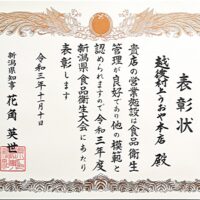 表彰状
越後村上うおや本店 殿
貴店の営業施設は食品衛生
管理が良好であり他の模範と
認められますので令和三年度
新潟県食品衛生大会にあたり
表彰します
令和三年十一月十日
新潟県知事 花角英世